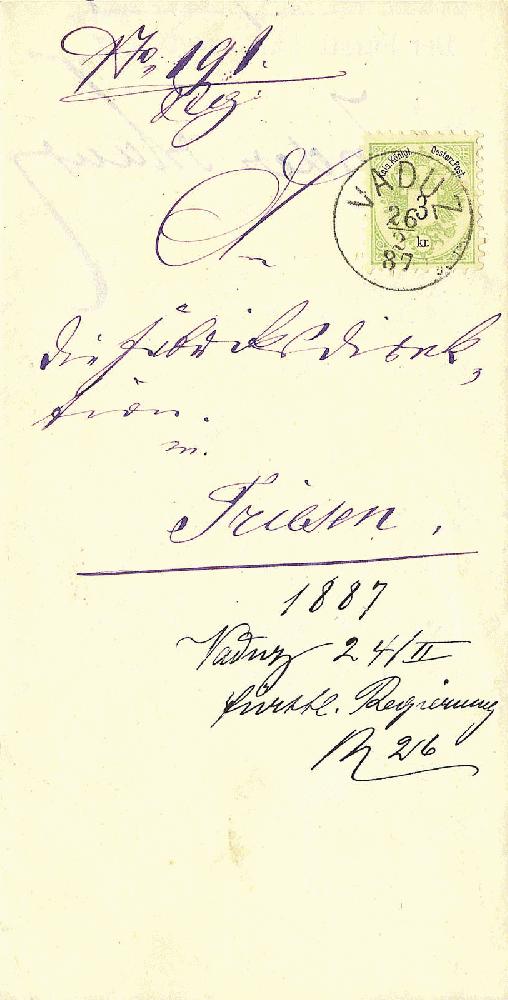 No. 191.
Reg
Kais. Königl. Oesterr. Post.
VADUZ
3 kr.
26
2
87
An
die Fabriksdirek-
tion.
in
Triesen.
1887
Vaduz 24/II
fürstl. Regierung
R 26